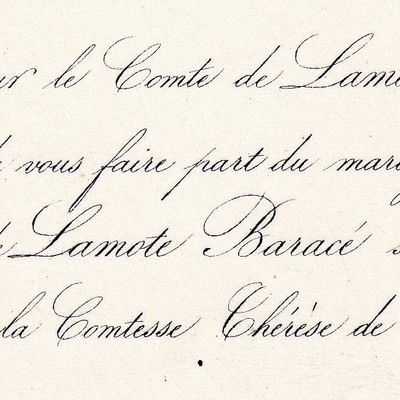 ur le Comte de Lamo
vous faire part du mari
é Lamote Baracé
la Comtesse Thérèse de